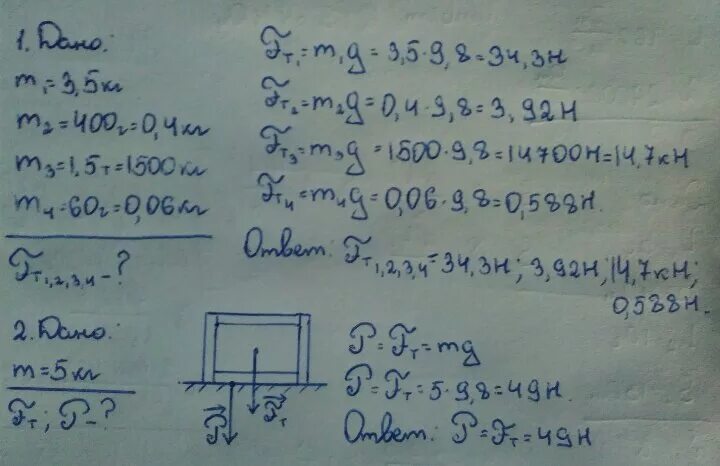 1. Дано:
m₁=3,5кг
m₂=400г=0,4кг
m₃=1,5т=1500кг
m₄=60г=0,06кг
Fт₁,₂,₃,₄-?
Fт₁=m₁g=3,5·9,8=34,3Н
Fт₂=m₂g=0,4·9,8=3,92Н
Fт₃=m₃g=1500·9,8=14700Н=14,7кН
Fт₄=m₄g=0,06·9,8=0,588Н.
Ответ: Fт₁,₂,₃,₄=34,3Н; 3,92Н; 14,7кН;
0,588Н.
2. Дано:
m=5кг
Fт; P-?
P
Fт
P=Fт=mg
P=Fт=5·9,8=49Н.
Ответ: P=Fт=49Н